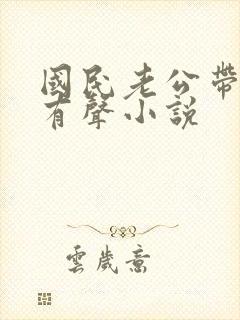 國民老公帶
有聲小說
雲歲意